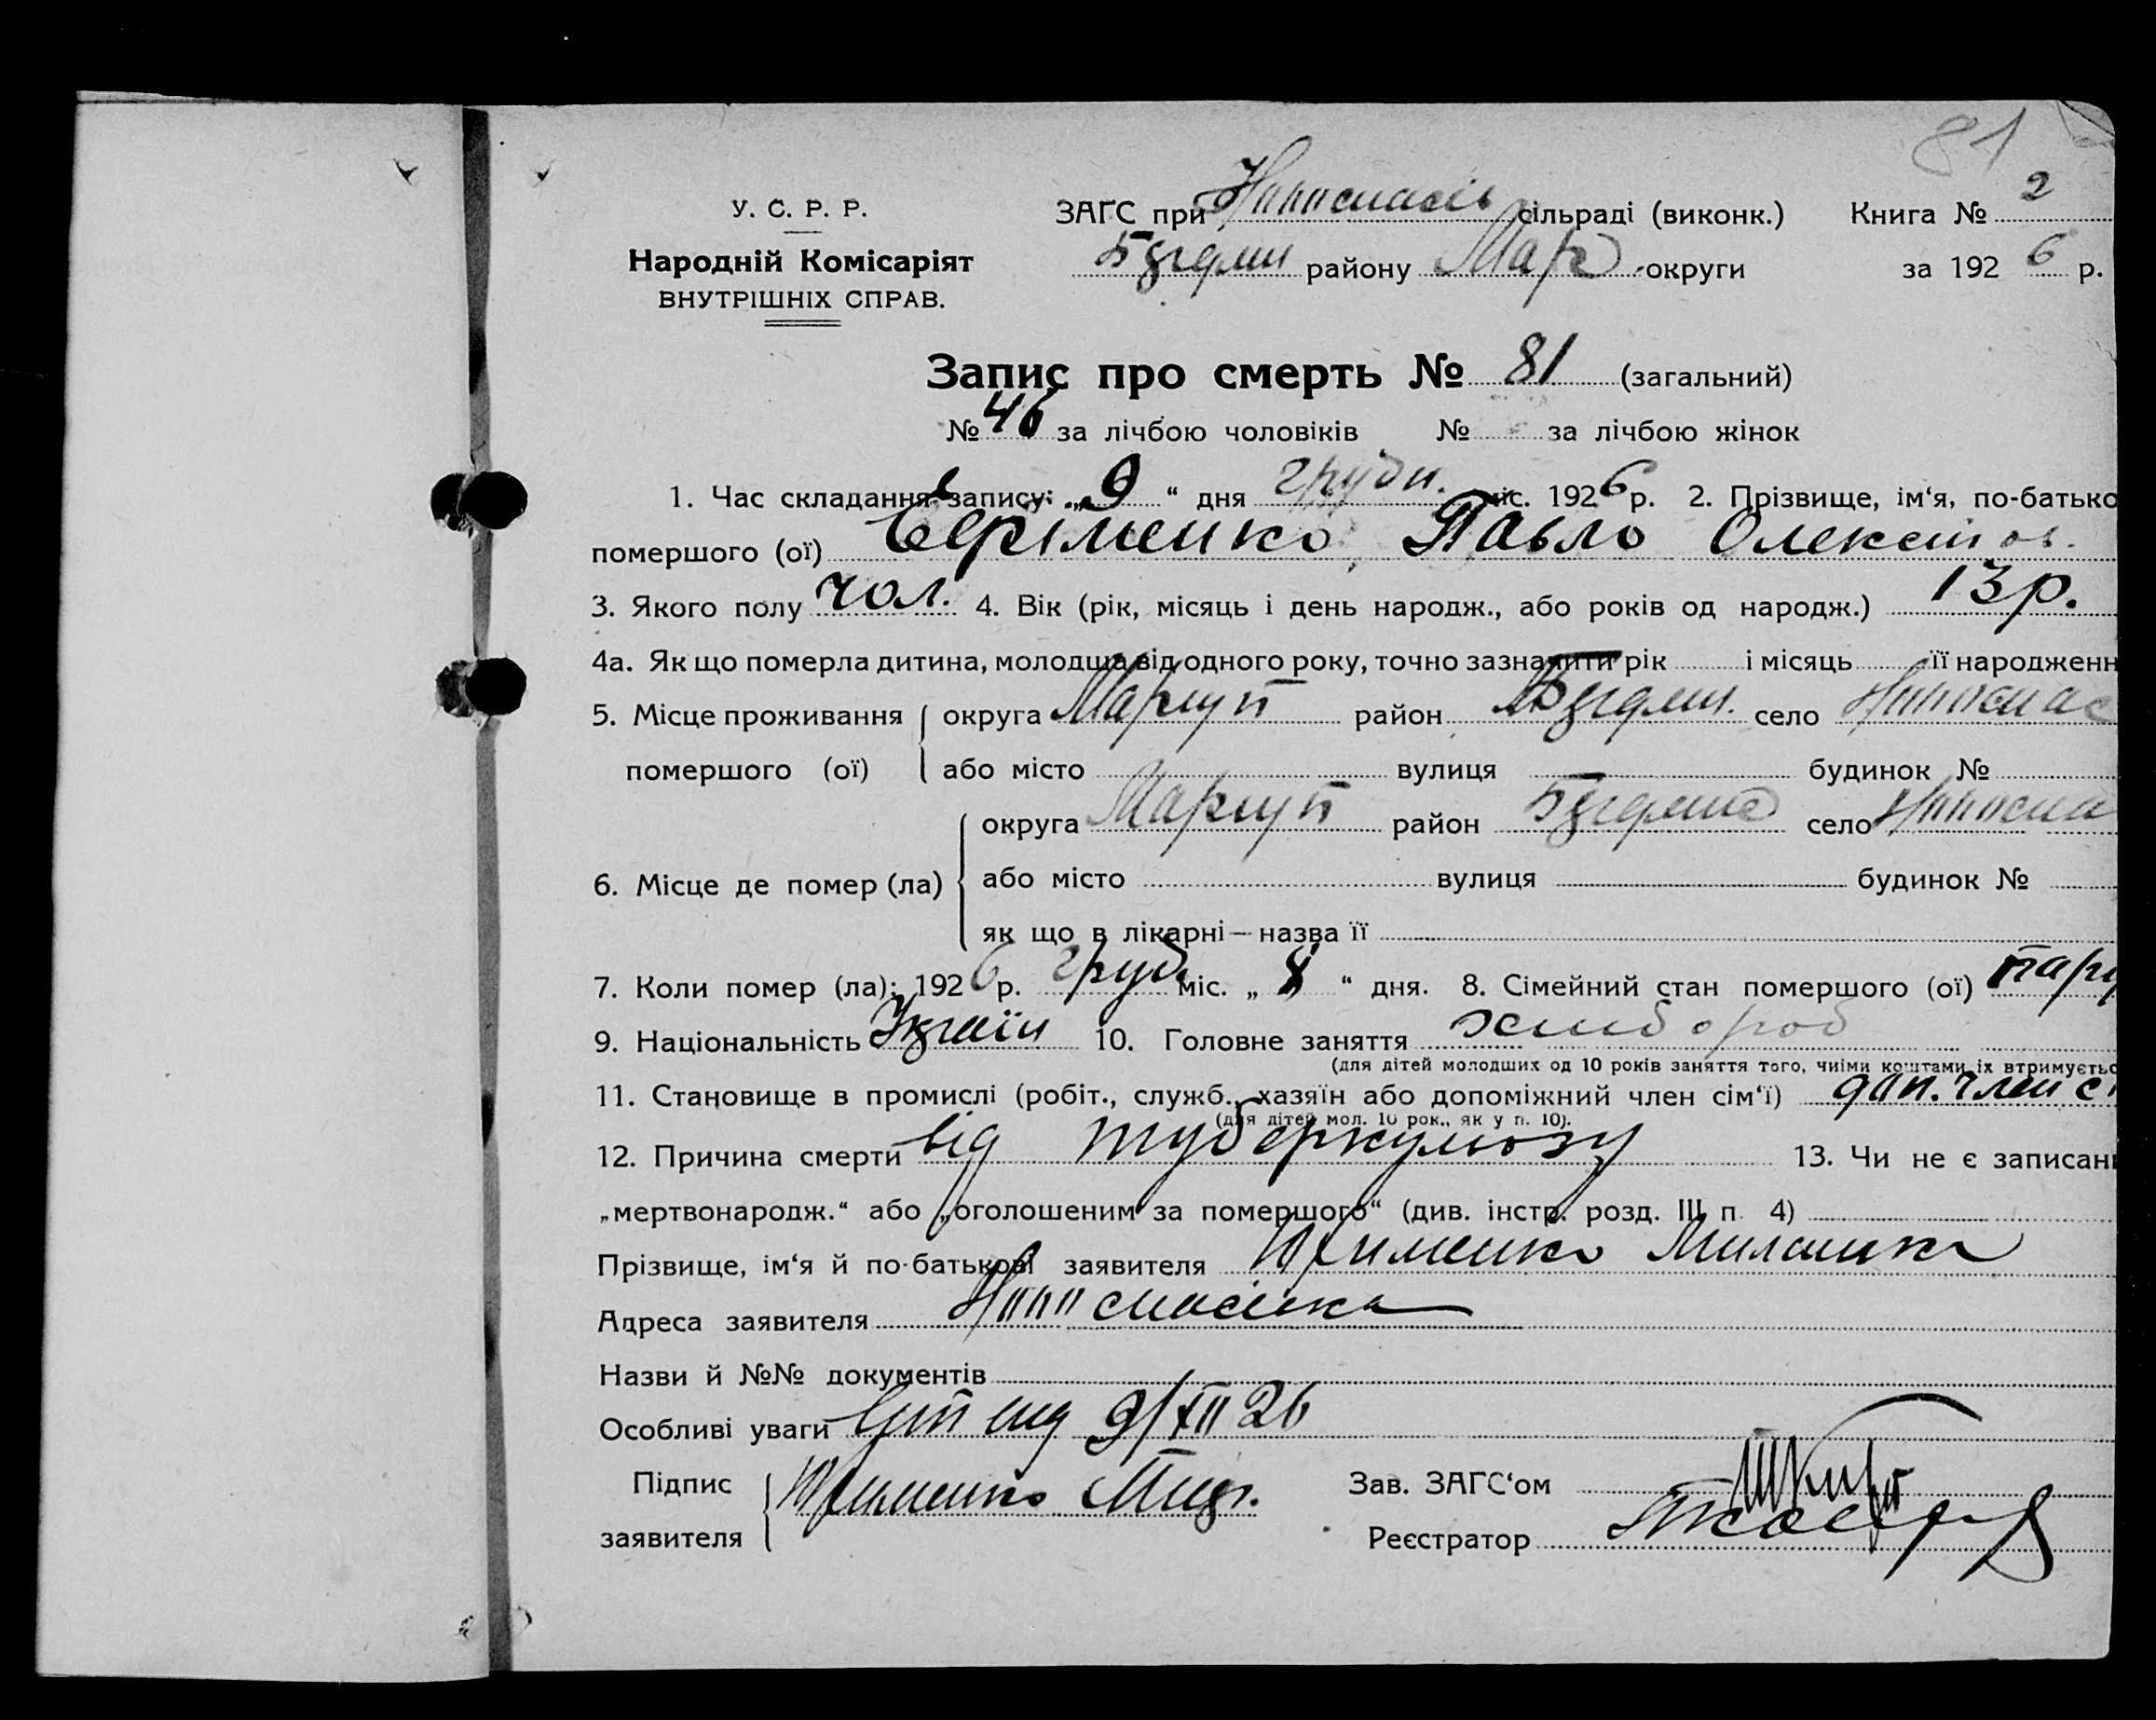 81
У. С. Р. Р.
ЗАГС при Новоспасів сільраді (виконк.) Книга № 2
Народній Комісаріят
району Мар округи за 1926 р.
ВНУТРІШНІХ СПРАВ.
Запис про смерть № 81 (загальний)
№ 46 за лічбою чоловіків № за лічбою жінок
1. Час складання запису: „9“ дня грудн. міс. 1926 р. 2. Прізвище, ім‘я, по-батько
помершого (ої) Єфіменко Павло
3. Якого полу чол. 4. Вік (рік, місяць і день народж., або років од народж.) 13 р.
4а. Як що померла дитина, молодша від одного року, точно зазначити рік і місяць її народженн
5. Місце проживання округа Маріуп район село Новоспас
помершого (ої) або місто вулиця будинок №
округа Маріуп район село Новоспа
6. Місце де помер (ла) або місто вулиця будинок №
як що в лікарні—назва її
7. Коли помер (ла): 1926 р. груд міс. „8“ дня. 8. Сімейний стан помершого (ої)
9. Національність Украін 10. Головне заняття хлібороб
(для дітей молодших од 10 років заняття того, чиїми коштами їх втримуєтьс
11. Становище в промислі (робіт., служб., хазяїн або допоміжний член сім‘ї) доп. член сі
(для дітей мол. 10 рок., як у п. 10).
12. Причина смерти від туберкульозу 13. Чи не є записан
„мертвонародж.“ або „оголошеним за помершого“ (див. інстр. розд. III п. 4)
Прізвище, ім‘я й по-батькові заявителя
Адреса заявителя Новоспасівка
Назви й №№ документів
Особливі уваги 9/XII 26
Підпис Зав. ЗАГС‘ом
заявителя Реєстратор